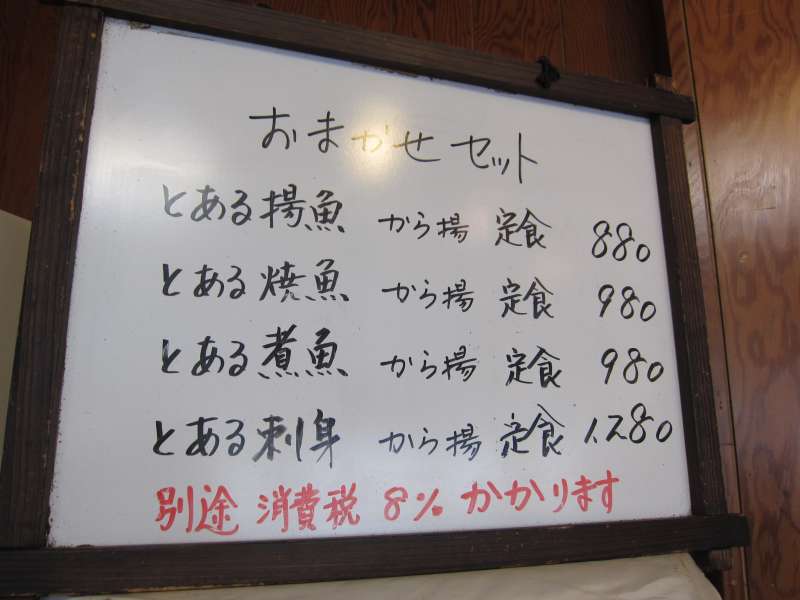 おまかせセット
とある揚魚 から揚 定食 880
とある焼魚 から揚 定食 980
とある煮魚 から揚 定食 980
とある刺身 から揚 定食 1,280
別途 消費税 8% かかります